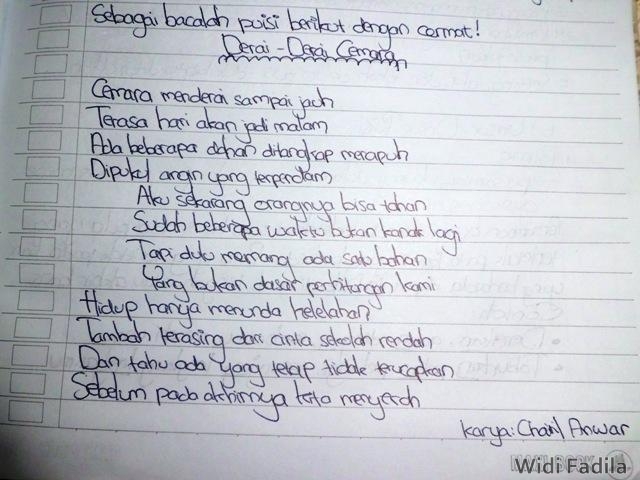 Sebagai bacalah puisi berikut dengan cermat!
Derai - Derai Cemara
Cemara menderai sampai jauh
Terasa hari akan jadi malam
Ada beberapa dahan ditangkap merapuh
Dipukul angin yang terpendam
Aku sekarang orangnya bisa tahan
Sudah beberapa waktu bukan kanak lagi
Tapi dulu memang ada satu bahan
Yang bukan dasar perhitungan kami
Hidup hanya menunda kelelahan
Tambah terasing dari cinta sekolah rendah
Dan tahu ada yang tetap tidak terucapkan
Sebelum pada akhirnya kita menyerah
Karya: Chairil Anwar
Widi Fadila